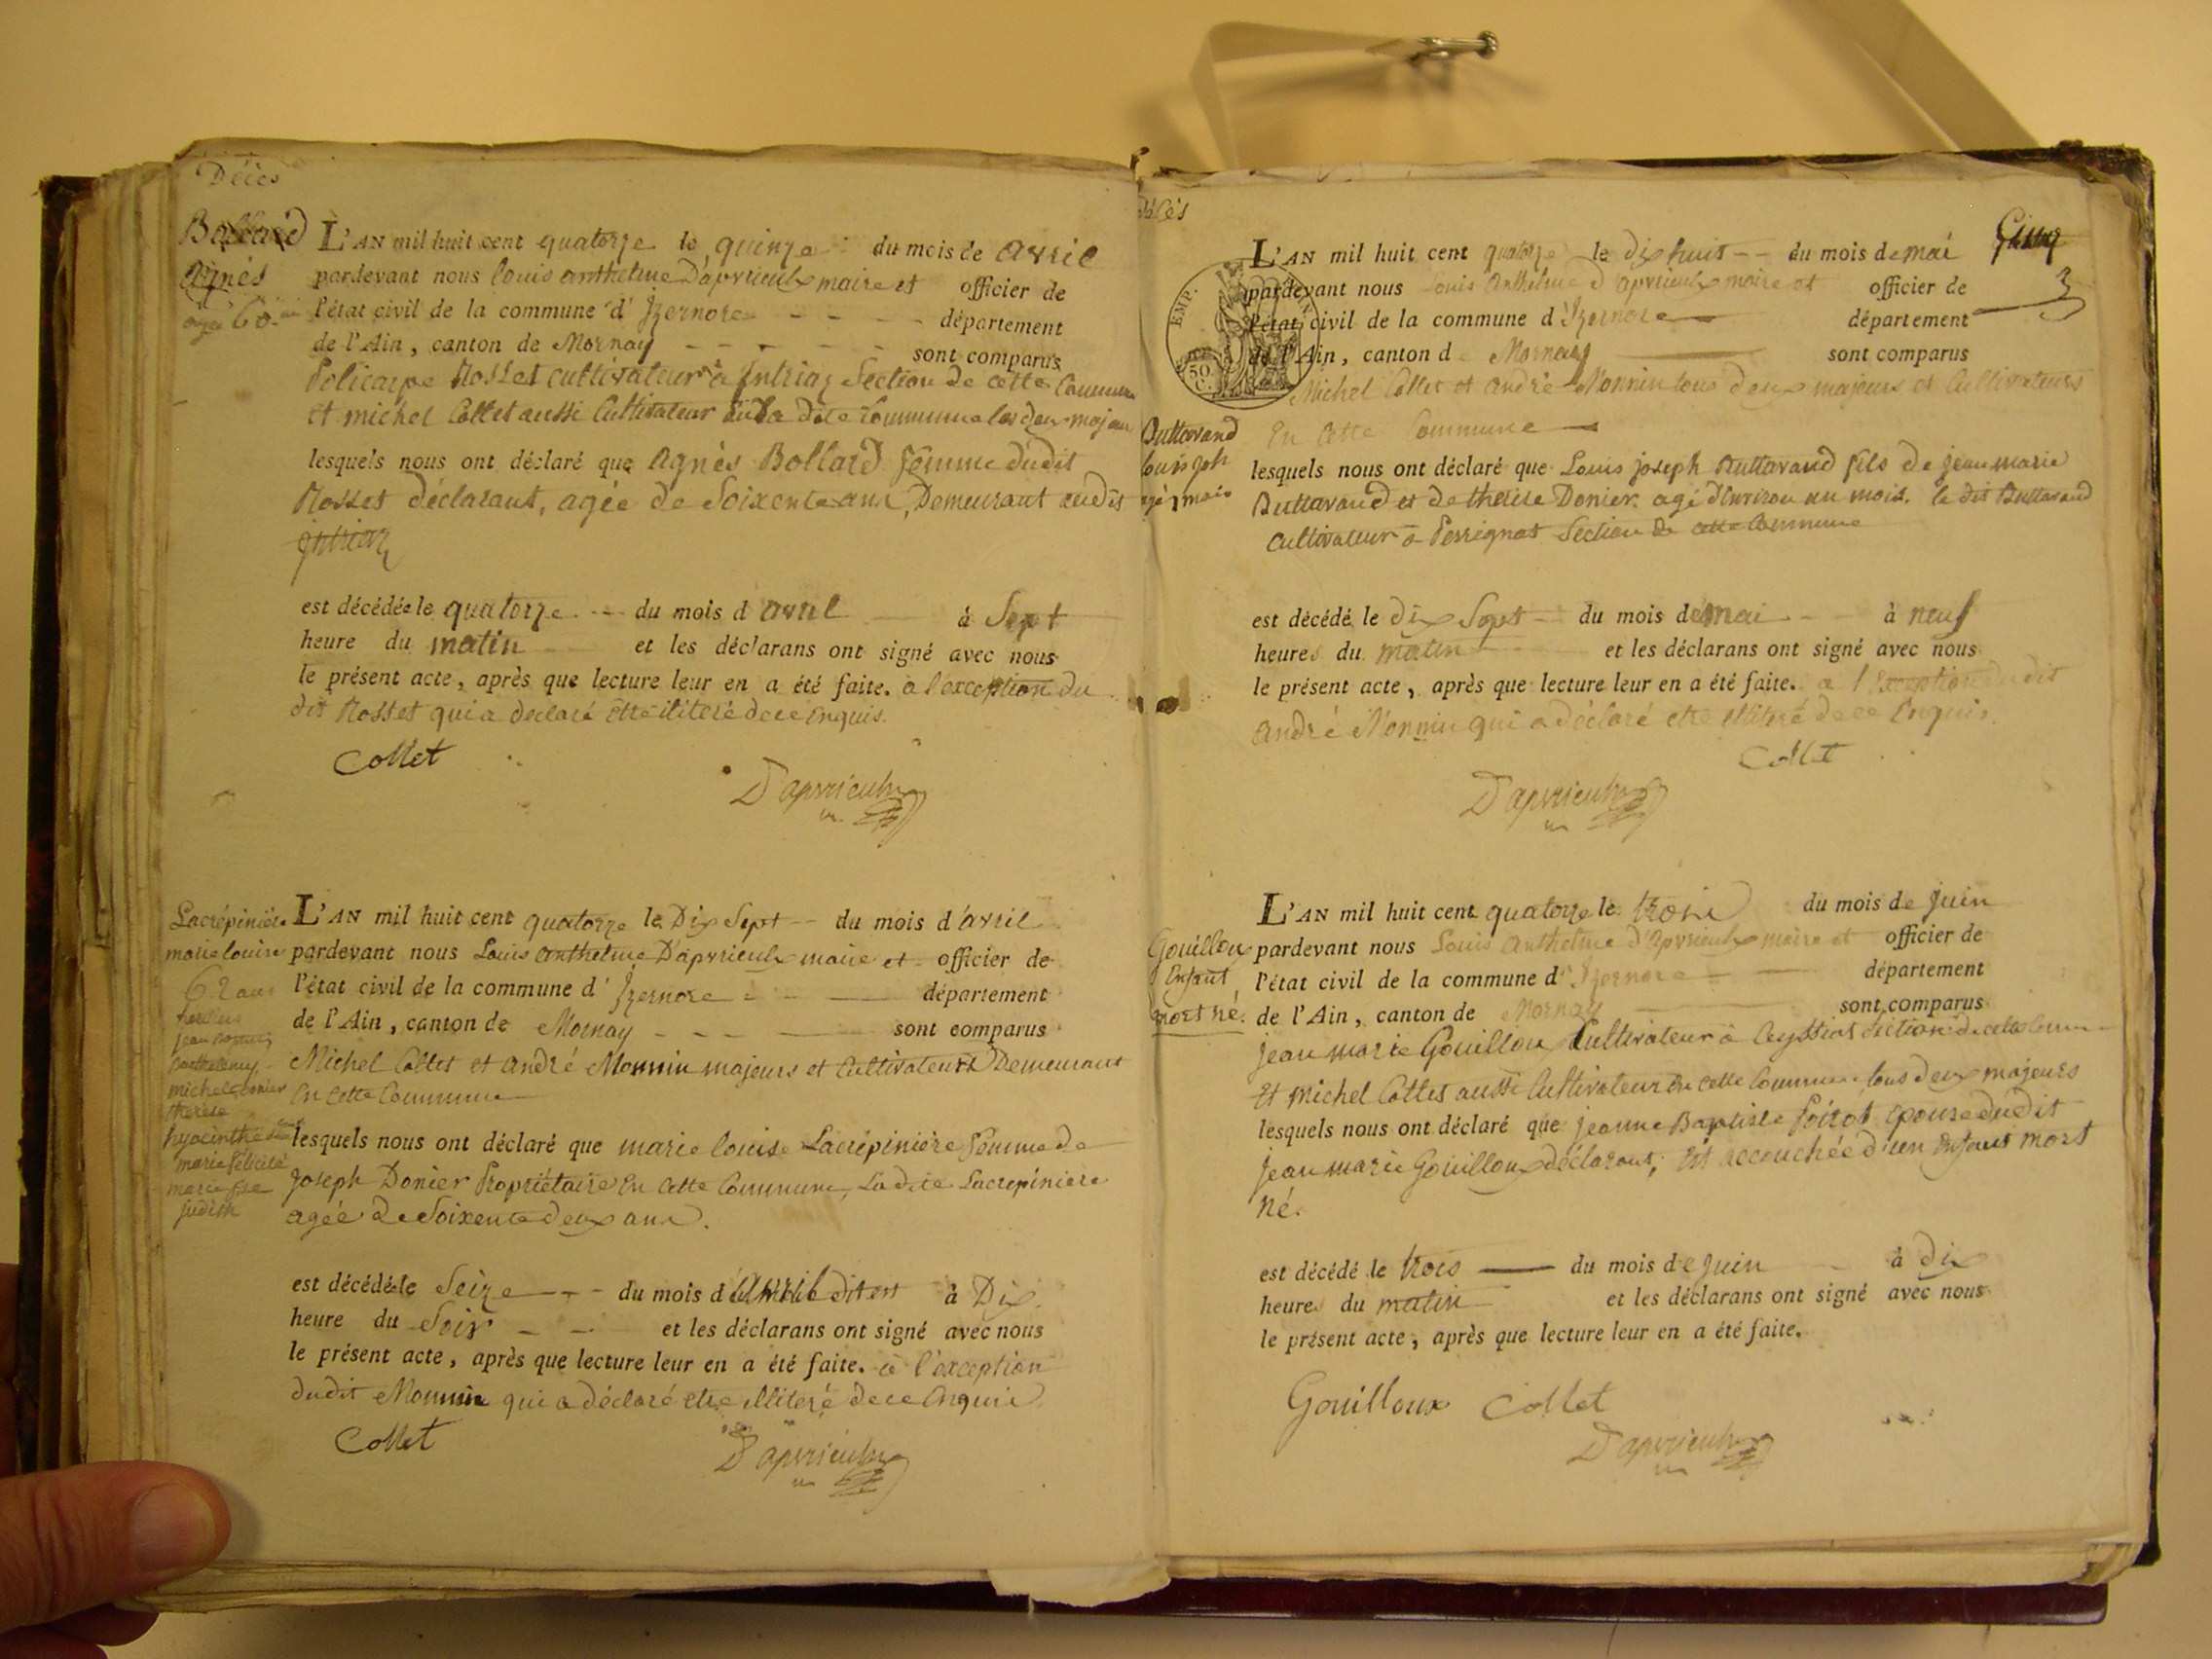 Décès
Bollard
agnès
agée 60 ans
L'AN mil huit cent quatorze le quinze du mois de avril
pardevant nous Louis anthelme D'apvrieulx maire et officier de
l'état civil de la commune d' Izernore département
de l'Ain, canton de Mornay sont comparus
Policarpe Rosset cultivateur à Intriaz Section de cette Commune
et michel Collet aussi Cultivateur en la dite Commune les deux majeurs
lesquels nous ont déclaré que Agnès Bollard femme dudit
Rosset déclarant, agée de Soixente ans, Demeurant audit
Intriaz
est décédée le quatorze du mois d avril à Sept
heure du matin et les déclarans ont signé avec nous
le présent acte, après que lecture leur en a été faite. a l'exception du
dit Rosset qui a declaré etre ilitéré de ce Enquis.
Collet
D'apvrieulx
Lacrépinière
marie louise
62 ans
jean
barthelemy
michel donier
therese
hyacinthe
marie félicité
marie
judith
L'AN mil huit cent quatorze le Dix Sept du mois d'avril
pardevant nous Louis anthelme D'apvrieulx maire et officier de
l'état civil de la commune d' Izernore département
de l'Ain, canton de Mornay sont comparus
Michel Collet et andré Monnin majeurs et Cultivateurs Demeurant
En Cette Commune
lesquels nous ont déclaré que marie louise Lacrépinière femme de
Joseph Donier Propriétaire En Cette Commune, Ladite Lacrépinière
agée de Soixente deux ans.
est décédée le Seize du mois d'Avril à Dix
heure du Soir et les déclarans ont signé avec nous
le présent acte, après que lecture leur en a été faite. a l'exception
dudit Monnin qui a déclaré etre illiteré de ce Enquis
Collet
D'apvrieulx
décés
Cinq
3
EMP.
50
C.
L'AN mil huit cent quatorze le dix huit du mois de mai
pardevant nous Louis Anthelme d'apvrieulx maire et officier de
l'état civil de la commune d'Izernore département
de l'Ain, canton d Mornay sont comparus
Michel Collet et andré Monnin tous deux majeurs et Cultivateurs
En Cette Commune
Buttavand
louis jph
agé 1 mois
lesquels nous ont déclaré que Louis joseph Buttavand fils de jean marie
Buttavand et de thérèse Donier. agé d'Environ un mois. le dit Buttavand
cultivateur a Perrignat Section de cette Commune
est décédé le dix Sept du mois de mai à neuf
heures du matin et les déclarans ont signé avec nous
le présent acte, après que lecture leur en a été faite. a l'Exception dudit
André Monnin qui a déclaré etre illiteré de ce Enquis.
Collet
D'apvrieulx
Gouilloux
Enfant
mort né.
L'AN mil huit cent quatorze le trois du mois de juin
pardevant nous Louis Anthelme d'Apvrieulx maire et officier de
l'état civil de la commune d'Izernore département
de l'Ain, canton de Mornay sont comparus
jean marie Gouilloux Cultivateur à Ceyssiat Section de cette Commune
Et michel Collet aussi Cultivateur En cette Commune tous deux majeurs
lesquels nous ont déclaré que jeanne Baptiste Poirot épouse dudit
jean marie Gouilloux déclarant, Est accouchée d'un Enfant mort
né.
est décédé le trois du mois de juin à dix
heures du matin et les déclarans ont signé avec nous
le présent acte, après que lecture leur en a été faite.
Gouilloux Collet
D'apvrieulx